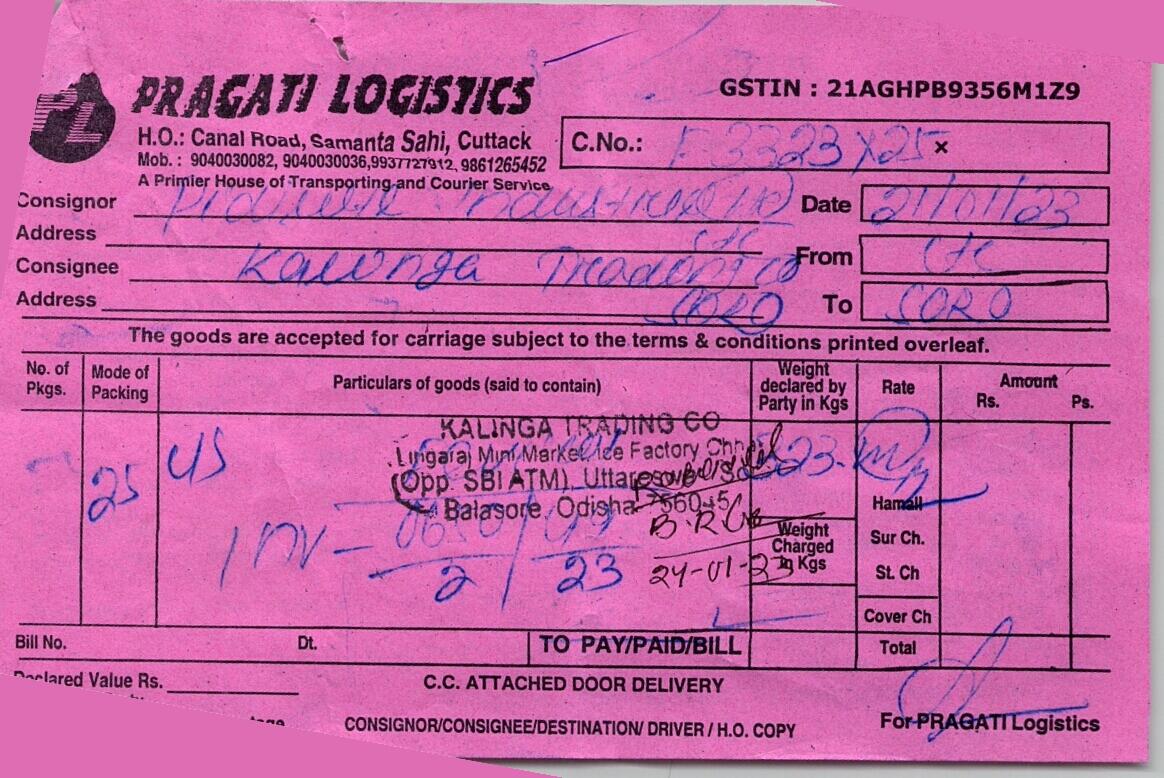 PRAGATI LOGISTICS
GSTIN : 21AGHPB9356M1Z9
H.O.: Canal Road, Samanta Sahi, Cuttack
Mob. : 9040030082, 9040030036,9937727912, 9861265452
A Primier House of Transporting and Courier Service
C.No.: F 3323 X 25 x
Consignor Pidilite Industries Ltd
Date 21/01/23
Address CTC
From CTC
Consignee Kalinga Trading Co
Address SORO
To SORO
The goods are accepted for carriage subject to the terms & conditions printed overleaf.
No. of Pkgs.
Mode of Packing
Particulars of goods (said to contain)
Weight declared by Party in Kgs
Rate
Amount
Rs. Ps.
KALINGA TRADING CO
Lingaraj Mini Market, Ice Factory Chhak
(Opp. SBI ATM), Uttareswar
Balasore, Odisha-756045
25
INV -
2 23
B.R.
24-01-23
Weight Charged in Kgs
Hamali
Sur Ch.
St. Ch
Cover Ch
Bill No. Dt. TO PAY/PAID/BILL
Total
Declared Value Rs.
C.C. ATTACHED DOOR DELIVERY
CONSIGNOR/CONSIGNEE/DESTINATION/ DRIVER / H.O. COPY
For PRAGATI Logistics